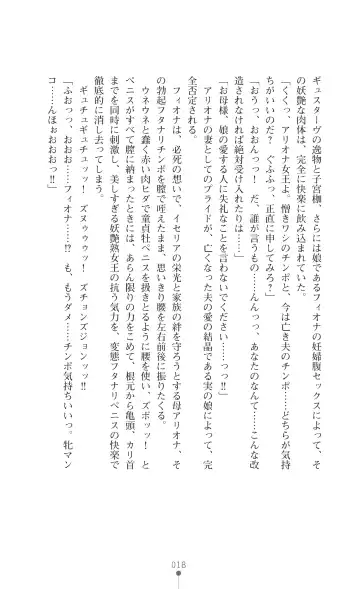 ギュスターヴの逸物と子宮枷、さらには娘であるフィオナの妊婦腹セックスによって、そ
の妖艶な肉体は、完全に快楽に飲み込まれていた。
「くくっ、アリオナ女王よ。憎きワシのチンポと、今は亡き夫のチンポ……どちらが気持
ちがいいのだ？　ぐふふっ、正直に申してみろ？」
「おうっ、おおんっっ！　だ、誰が言うもの……んんっっ、あなたのなんて……こんな改
造されなければ絶対受け入れたりは……」
「お母様、娘の愛する人に失礼なことを言わないでください……っっ‼」
アリオナの妻としてのプライドが、亡くなった夫の愛の結晶である実の娘によって、完
全否定される。
フィオナは、必死の想いで、イセリアの栄光と家族の絆を守ろうとする母アリオナ、そ
の勃起フタナリチンポを膣で咥えたまま、思いきり腰を左右前後に振りたくる。
ウネウネと蠢く赤い肉ヒダで童貞牡ペニスを扱きとるように腰を使い、ズボッッ！　と
ペニスがすべて膣に納まったときには、あらん限りの力をこめて、根元から亀頭、カリ首
までを同時に刺激し、美しすぎる妖艶熟女王の抗う気力を、変態フタナリペニスの快楽で
徹底的に消し去ってしまう。
ギュチュギュチュッッ！　ズヌゥゥゥッ！　ズチョンズジョンッッ‼
「ふおっっ、おおお……フィオナ……⁉　も、もうダメ……チンポ気持ちいいっっ。牝マン
コ……んほぉおおおっっ！」
018